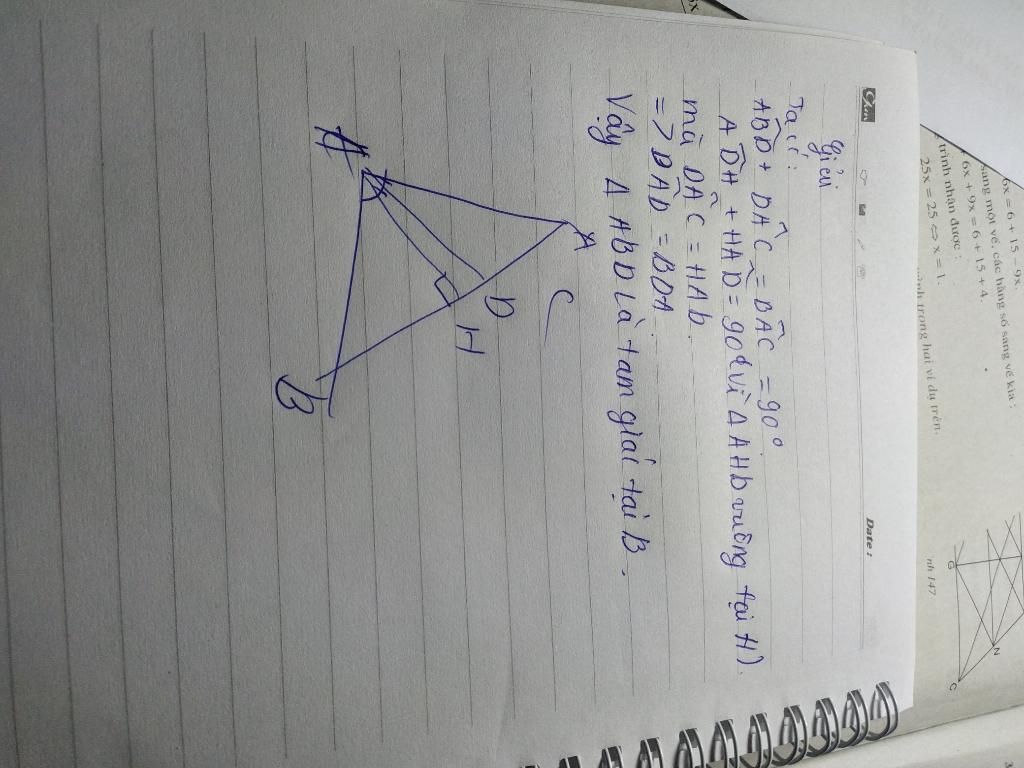 Clan
Date :
Giải
Ta có:
ABD + DAC = BAC = 90°
ADH + HAD = 90° (vì Δ AHD vuông tại H)
mà DAC = HAD.
=> BAD = BDA.
Vậy Δ ABD là tam giác tại B.
A
C
D
H
A
B
6x = 6 + 15 - 9x.
sang một vế, các hằng số sang vế kia :
6x + 9x = 6 + 15 + 4.
trình nhận được :
25x = 25 ⇔ x = 1.
trong hai ví dụ trên.
nh 147
G
N
C